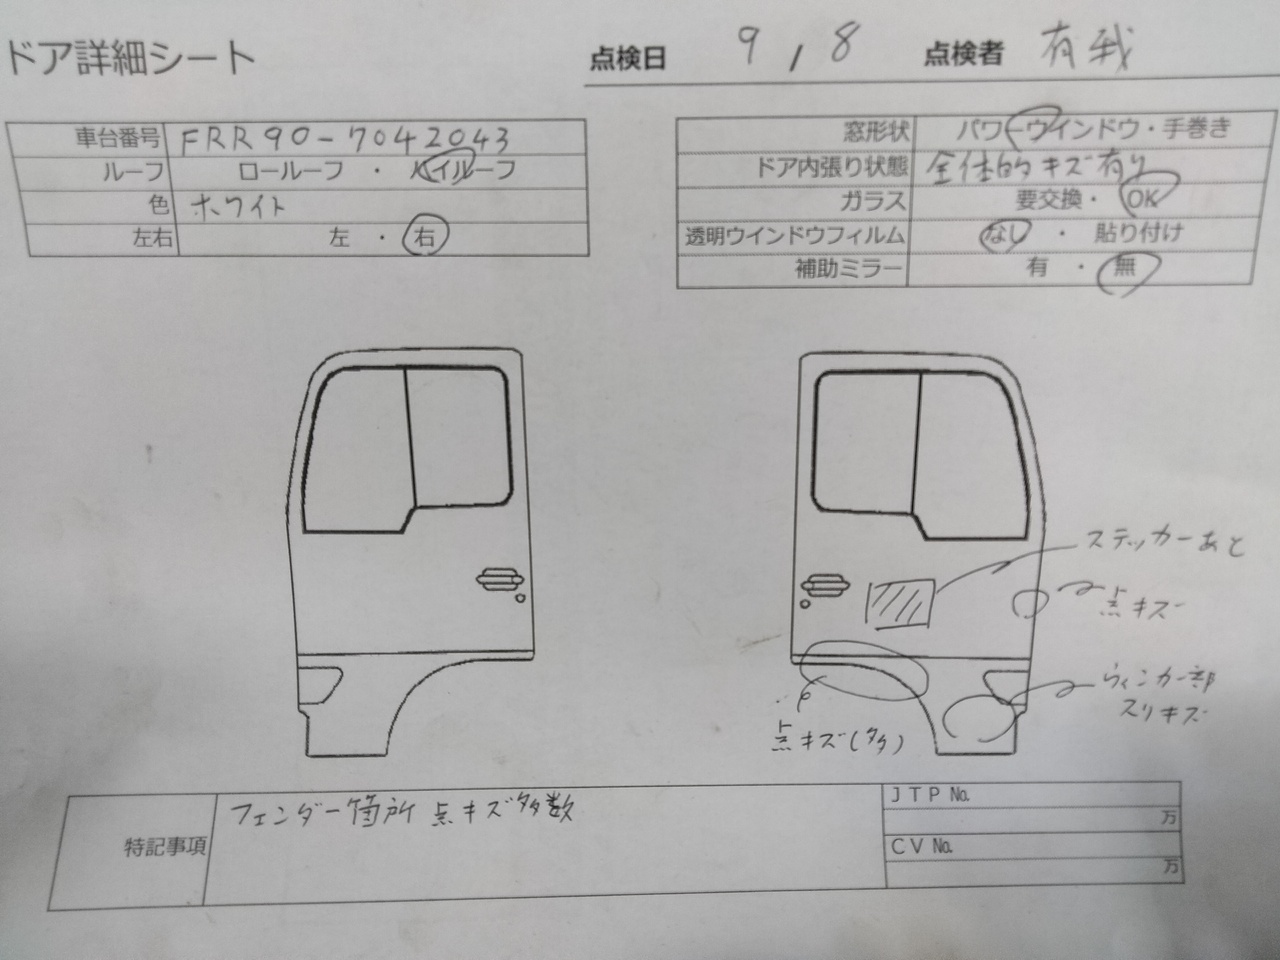 ドア詳細シート
点検日 9,8 点検者 有我
車台番号 FRR90-7042043
ルーフ ロールーフ ・ ハイルーフ
色 ホワイト
左右 左 ・ 右
窓形状 パワーウインドウ・手巻き
ドア内張り状態 全体的キズ有り
ガラス 要交換・ OK
透明ウインドウフィルム なし ・ 貼り付け
補助ミラー 有 ・ 無
ステッカーあと
点キズ
ウィンカー部
スリキズ
点キズ(多)
特記事項 フェンダー箇所 点キズ多数
JTP №
万
CV №
万